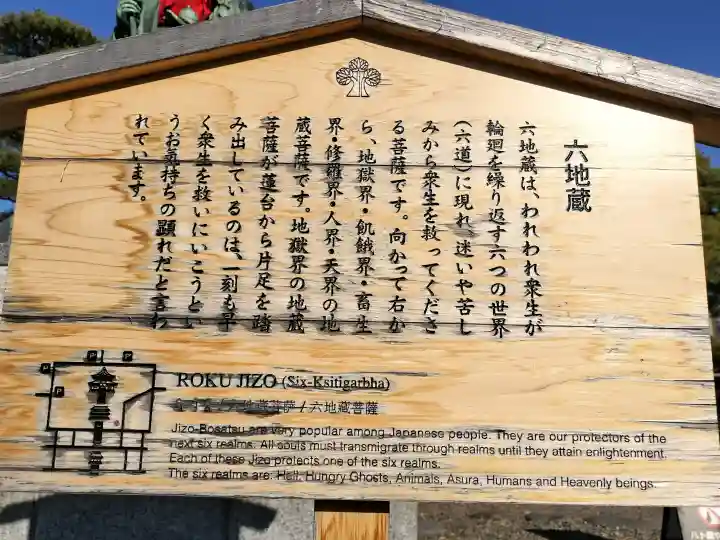 六地蔵
六地蔵は、われわれ衆生が
輪廻を繰り返す六つの世界
(六道)に現れ、迷いや苦し
みから衆生を救ってくださ
る菩薩です。向かって右か
ら、地獄界・飢餓界・畜生
界・修羅界・人界・天界の地
蔵菩薩です。地獄界の地蔵
菩薩が蓮台から片足を踏
み出しているのは、一刻も早
く衆生を救いにいこうとい
うお気持ちの顕れだと言わ
れています。
ROKU JIZO (Six-Ksitigarbha)
/ 六地藏菩薩
Jizo-Bosatsu are very popular among Japanese people. They are our protectors of the
next six realms. All souls must transmigrate through realms until they attain enlightenment.
Each of these Jizo protects one of the six realms.
The six realms are: Hell, Hungry Ghosts, Animals, Asura, Humans and Heavenly beings.
P
P
P
P